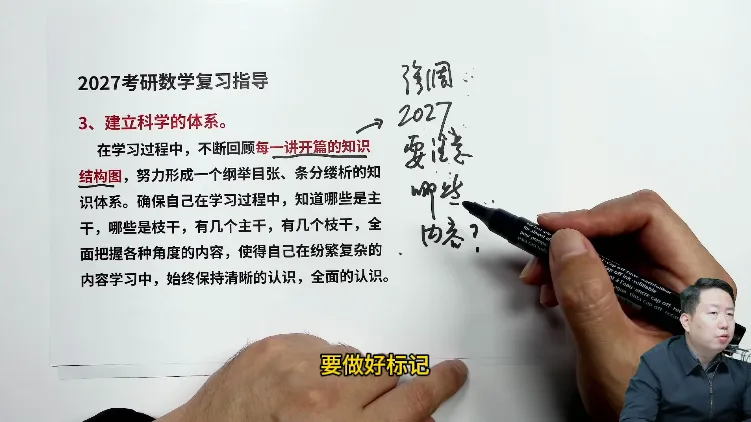 2027考研数学复习指导
3、建立科学的体系。
在学习过程中，不断回顾每一讲开篇的知识
结构图，努力形成一个纲举目张、条分缕析的知
识体系。确保自己在学习过程中，知道哪些是主
干，哪些是枝干，有几个主干，有几个枝干，全
面把握各种角度的内容，使得自己在纷繁复杂的
内容学习中，始终保持清晰的认识，全面的认识。
强调
2027
要注意
哪些
内容？
要做好标记